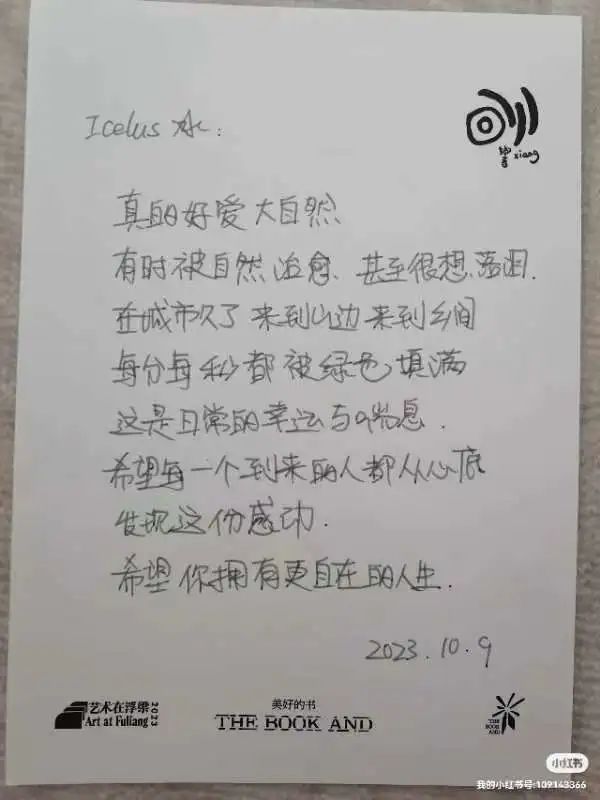 Icelus 水:
响
xiang
真的好爱大自然
有时被自然治愈、甚至很想落泪.
在城市久了 来到山边 来到乡间
每分每秒都被绿色填满
这是日常的幸运与喘息.
希望每一个到来的人都从心底
发现这份感动.
希望你拥有更自在的人生.
2023.10.9
艺术在浮梁
Art at Fuliang
2023
美好的书
THE BOOK AND
THE
BOOK
AND
小红书
我的小红书号:109143366